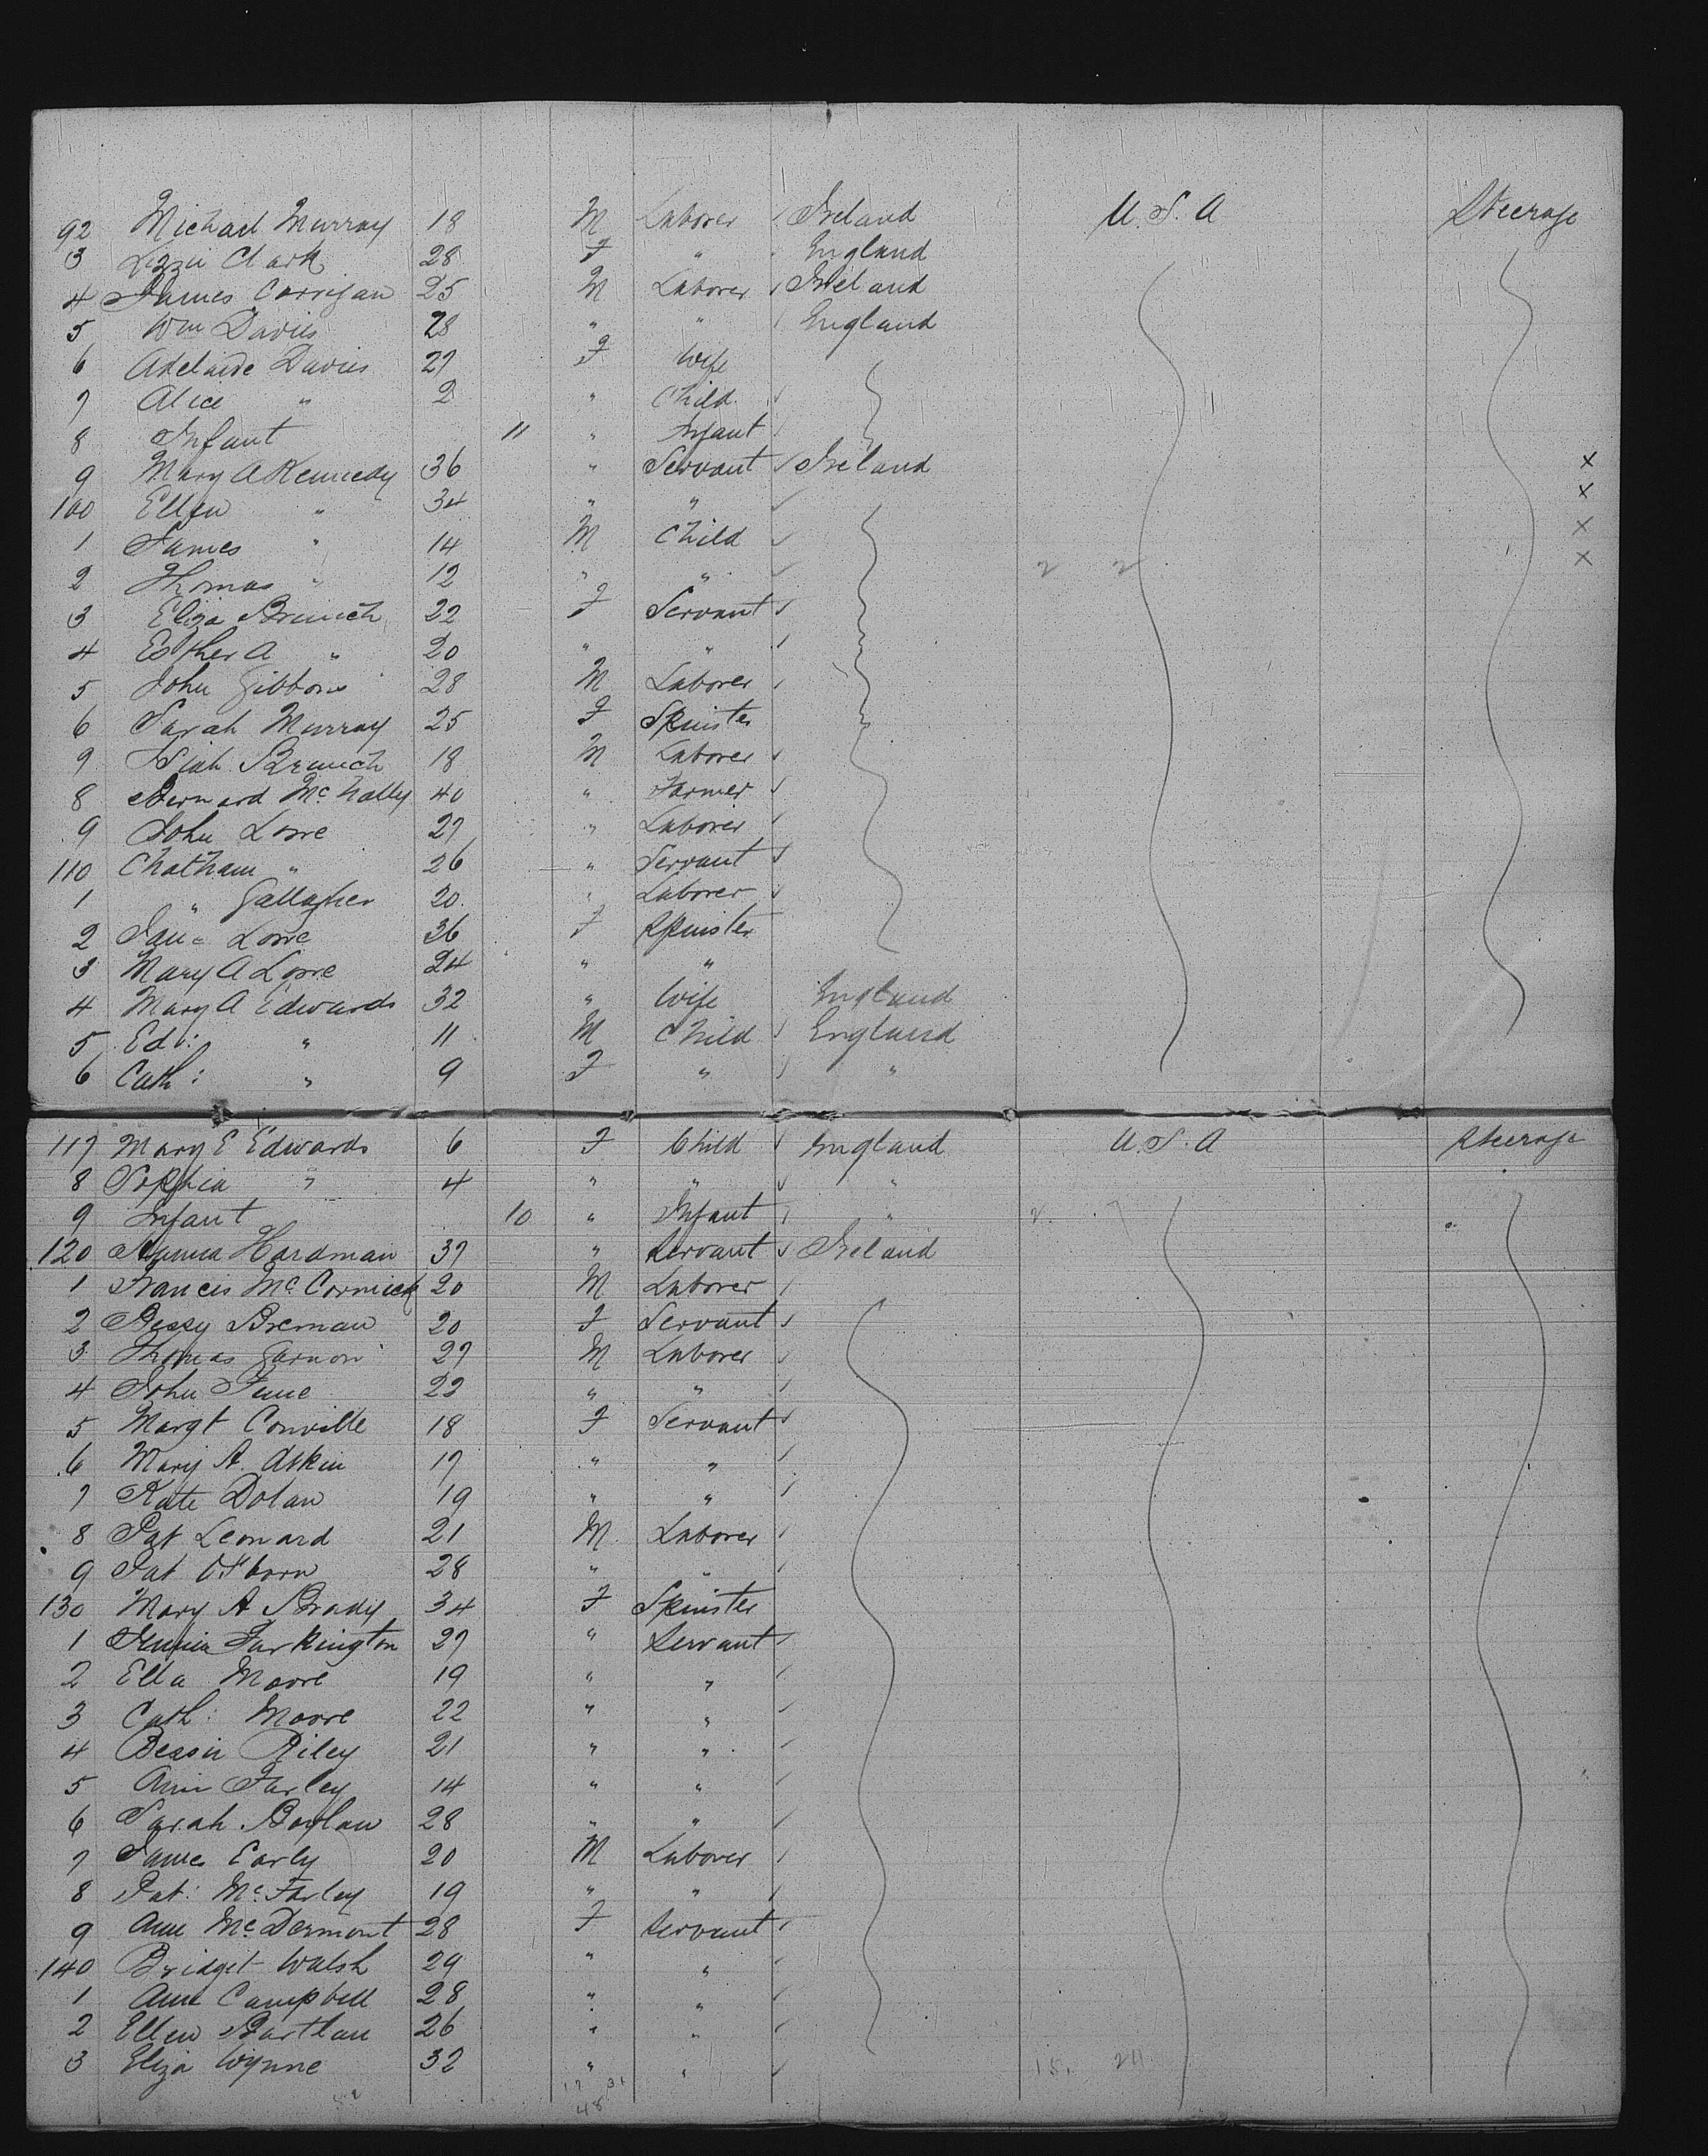 92 Michael Murray 18 M Laborer Ireland U.S.A Steerage
3 Lizzie Clark 28 F " England
4 James Corrigan 25 M Laborer Ireland
5 Wm Davies 28 " " England
6 Adelaide Davies 27 F Wife
7 Alice " 2 " Child
8 Infant 11 " Infant
9 Mary A Kennedy 36 " Servant Ireland x
100 Ellen " 34 " " x
1 James " 14 M Child x
2 Thomas " 12 " " 2 2 x
3 Eliza 22 F Servant
4 Esther A " 20 " "
5 John Gibbons 28 M Laborer
6 Sarah Murray 25 F Spinster
9 18 M Laborer
8 Bernard Mc Nally 40 " Farmer
9 John Lowe 27 " Laborer
110 Chatham " 26 " Servant
1 " Gallagher 20 " Laborer
2 Jane Lowe 36 F Spinster
3 Mary A Lowe 24 " "
4 Mary A Edwards 32 " Wife England
5 Edw: " 11 M Child England
6 Cath: " 9 F " "
117 Mary E Edwards 6 F Child England U.S.A Steerage
8 Sophia " 4 " " "
9 Infant 10 " Infant " 2
120 Hardman 37 " Servant Ireland
1 Francis Mc Cormick 20 M Laborer
2 Bessy Brenan 20 F Servant
3 Thomas Garnon 27 M Laborer
4 John 22 " "
5 Margt Conville 18 F Servant
6 Mary A. Askin 17 " "
7 Kate Dolan 19 " "
8 Pat Leonard 21 M Laborer
9 Pat 28 " "
130 Mary A Brady 34 F Spinster
1 27 " Servant
2 Ella Moore 19 " "
3 Cath: Moore 22 " "
4 Bessie Riley 21 " "
5 Ann Farley 14 " "
6 Sarah Boylan 28 " "
7 James Early 20 M Laborer
8 Pat: Mc Farley 19 " "
9 Ann Mc Dermont 28 F Servant
140 Bridget Walsh 29 " "
1 Ann Campbell 28 " "
2 Ellen Bartlan 26 " "
3 Eliza Wynne 32 " " 15. 211
17 31
48